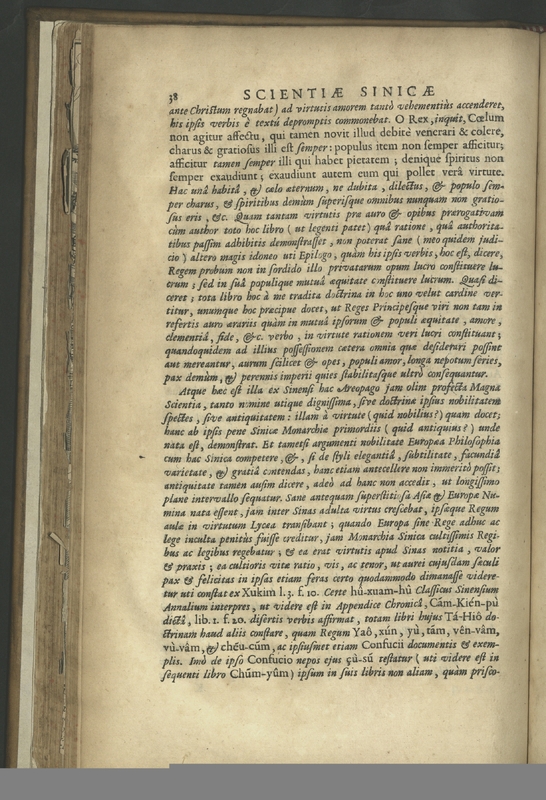 38 SCIENTIÆ SINICÆ
ante Christum regnabat) ad virtutis amorem tantò vehementiùs accenderet,
his ipsis verbis è textú depromptis commonebat. O Rex, inquit, Cœlum
non agitur affectu, qui tamen novit illud debitè venerari & colere,
charus & gratiosus illi est semper: populus item non semper afficitur;
afficitur tamen semper illi qui habet pietatem; denique spiritus non
semper exaudiunt; exaudiunt autem eum qui pollet verâ virtute.
Hac unâ habitâ, & cœlo æternum, ne dubita, dilectus, & populo sem-
per charus, & spiritibus demùm superisque omnibus nunquam non gratio-
sus eris, &c. Quam tantam virtutis præ auro & opibus prærogativam
cùm author toto hoc libro (ut legenti patet) quâ ratione, quâ authorita-
tibus passim adhibitis demonstrasset, non poterat sanè (meo quidem judi-
cio) altero magis idoneo uti Epilogo, quàm his ipsis verbis, hoc est, dicere,
Regem probum non in sordido illo privatarum opum lucro constituere lu-
crum; sed in suâ populique mutuâ æquitate constituere lucrum. Quasi di-
ceret; tota libro hoc à me tradita doctrina in hoc uno velut cardine ver-
titur, unumque hoc præcipue docet, ut Reges Principesque viri non tam in
refertis auro ærariis quàm in mutuâ ipsorum & populi æquitate, amore,
clementiâ, fide, &c. verbo, in virtute rationem veri lucri constituant;
quandoquidem ad illius possessionem cætera omnia quæ desiderari possint
aut mereantur, aurum scilicet & opes, populi amor, longa nepotum series,
pax demùm, & perennis imperii quies stabilitasque ultrò consequantur.
Atque hæc est illa ex Sinensi hac Areopago jam olim profecta Magna
Scientia, tanto nomine utique dignissima, sive doctrinæ ipsius nobilitatem
spectes, sive antiquitatem: illam à virtute (quid nobilius?) quam docet;
hanc ab ipsis pene Sinicæ Monarchiæ primordiis (quid antiquius?) unde
nata est, demonstrat. Et tametsi argumenti nobilitate Europæa Philosophia
cum hac Sinica competere, &, si de styli elegantiâ, subtilitate, facundiâ
varietate, & gratiâ contendas, hanc etiam antecellere non immeritò possit;
antiquitate tamen ausim dicere, adeò ad hanc non accedit, ut longissimo
plane intervallo sequatur. Sane antequam superstitiosa Asiæ & Europæ Nu-
mina nata essent, jam inter Sinas adulta virtus crescebat, ipsæque Regum
aulæ in virtutum Lycea transibant; quando Europa sine Rege adhuc ac
lege inculta penitùs fuisse creditur, jam Monarchia Sinica cultissimis Regi-
bus ac legibus regebatur; & ea erat virtutis apud Sinas notitia, valor
& praxis; ea cultioris vitæ ratio, vis, ac tenor, ut aurei cujusdam sæculi
pax & felicitas in ipsas etiam feras certo quodammodo dimanasse videre-
tur uti constat ex Xukim l. 3. f. 10. Certe hû-xuam-hû Classicus Sinensium
Annalium interpres, ut videre est in Appendice Chronicâ, Cám-Kién-pù
dictâ, lib. 1. f. 20. disertis verbis affirmat, totam libri hujus Tá-Hiŏ do-
ctrinam haud aliis constare, quam Regum Yaô, xún, yù, tām, vên-vâm,
vù-vâm, & chéu-cūm, ac ipsiusmet etiam Confucii documentis & exem-
plis. Imò de ipso Confucio nepos ejus çù-sū testatur (uti videre est in
sequenti libro Chūm-yûm) ipsum in suis libris non aliam, quàm prisco-